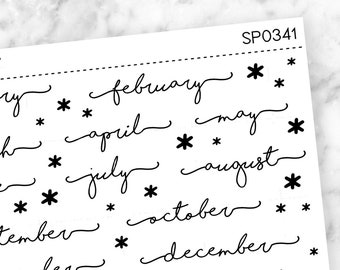 SP0341
ry february
april may
h july august
e october
tember december
ber